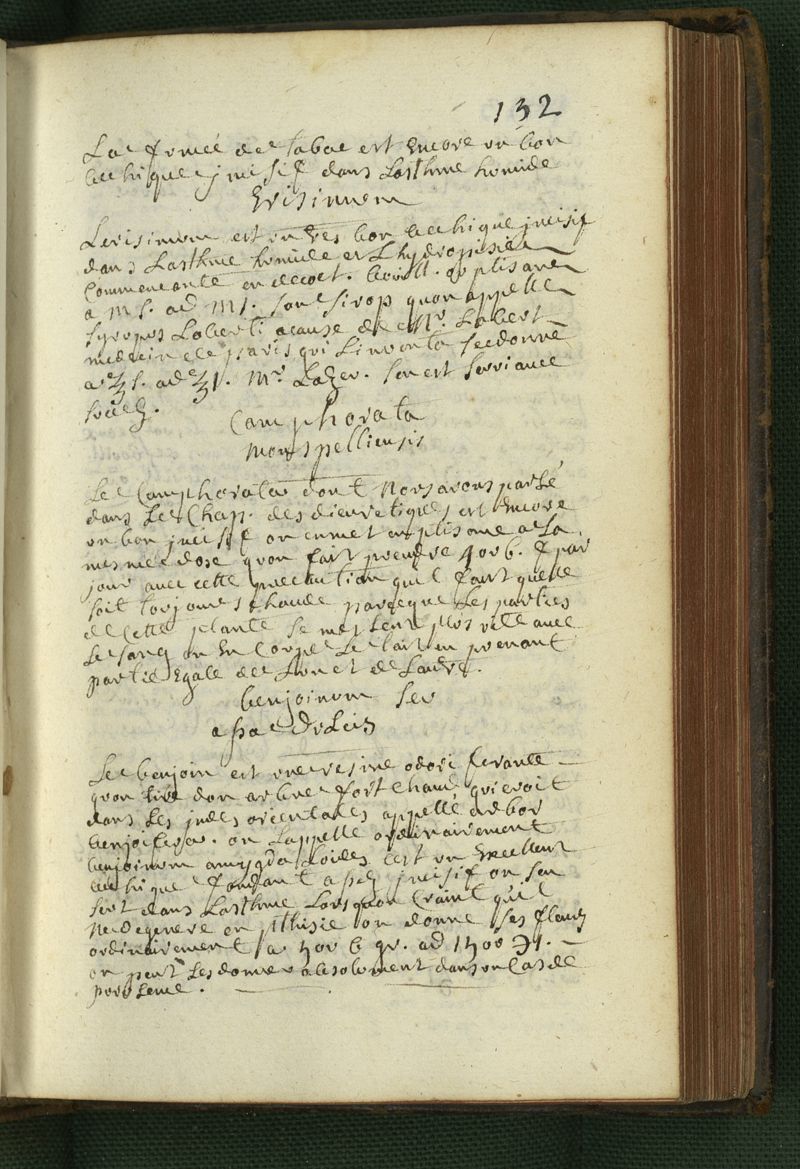 132
La fumée de tabac est encore un bon
bechique jncisif dans Lasthme humide
Erisimum
Lerisimum est un tres bon bechique jncisif
dans Lasthme humide et Lhydropisie
commencante en decoct. bouill. ou ptisane
a m s. ad m j. son sirop quon appelle
syrupus Loberti a cause de Mr. Lobert
medecin de paris qui Linventa se donne
a ʒ s. ad ʒ j. Mr Lazer. sen est servi avec
succez.
Camphorata
monspelliensis
Le Camphorata dont Nous avons parlé
dans Le Chap. des diuretiques est encore
un bon jncisif on en met en ptisane a La
mesme dose quon fait prendre 4 ou 6. f par
jour avec cette precaution quil faut quelle
soit toujours chaude parceque Les parties
de cette plante se meslent plus vite avec
Le sang on En coupe Le lait en prenant
partie Egale de Lun et de Lautre.
benjoinum seu
assa Dulcis
Le benjoin est une resine odoriferante
quon tire dun arbre fort chaud qui croit
dans Les jndes orientales appellé arbor
benjoifera. on Lappelle ordinairement
benjoinum amygdaloides cest un Excellent
bechique fondant assez jncisif on sen
sert dans Lasthme Lorsquon craint quil
ne degenere en pthisie on donne ses fleurs
ordinairement a 5 ou 6 gr. ad 15 ou ℈ j.
on peut Les donner absolument dans un cas de